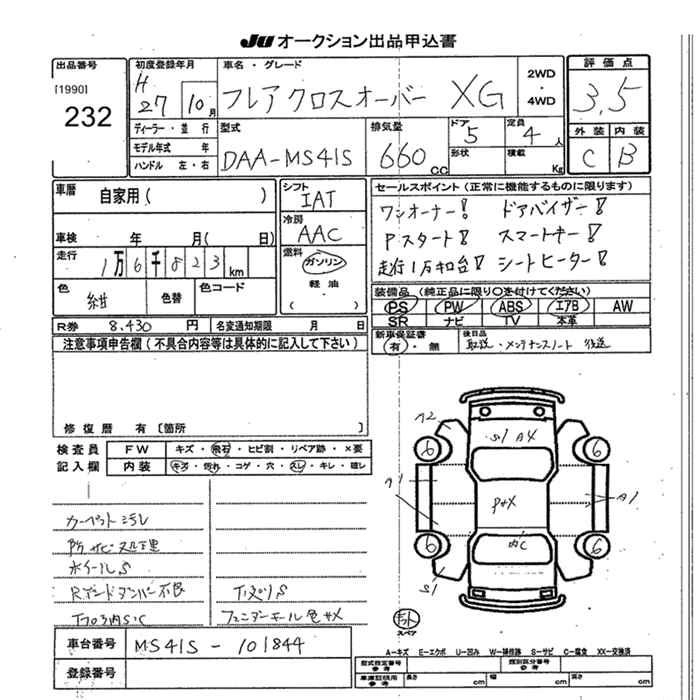 JU オークション出品申込書
出品番号
[1990]
232
初度登録年月
H
27 10月
車名・グレード
フレアクロスオーバー XG
2WD
・
4WD
評価点
3,5
外装 内装
C B
ディーラー・並行
モデル年式 年
ハンドル 左・右
型式
DAA-MS41S
排気量
660cc
ドア
5
形状
定員
4人
積載
Kg
車歴 自家用( )
車検 年 月( 日)
走行 1万6千823km
色 紺 色替 色コード
シフト
IAT
冷房
AAC
燃料
ガソリン
・
軽油
・
( )
セールスポイント(正常に機能するものに限ります)
ワンオーナー! ドアバイザー!
Pスタート! スマートキー!
走行1万キロ台! シートヒーター!
装備品(純正品に限り〇を付けてください)
PS PW ABS エアB AW
SR ナビ TV 本革
R券 8.430円 名変通知期限 月 日
新車保証書
有・無
後日品
取説・メンテナンスノート 後送
注意事項申告欄(不具合内容等は具体的に記入して下さい)
修復歴 有〔箇所 〕
検査員 FW キズ・飛石・ヒビ割・リペア跡・×要
記入欄 内装 キズ・汚れ・コゲ・穴・スレ・キレ・破レ
ホイールS
車台番号 MS41S - 101844
登録番号
A2
S1 A4
6 6
A1
A1
6 6
S1
スペア
A-キズ E-エクボ U-凹み W-補修跡 S-サビ C-腐食 XX-交換済
型式指定番号
参考
類別区分番号
参考
車庫証明用
参考
長さ cm 幅 cm 高さ cm